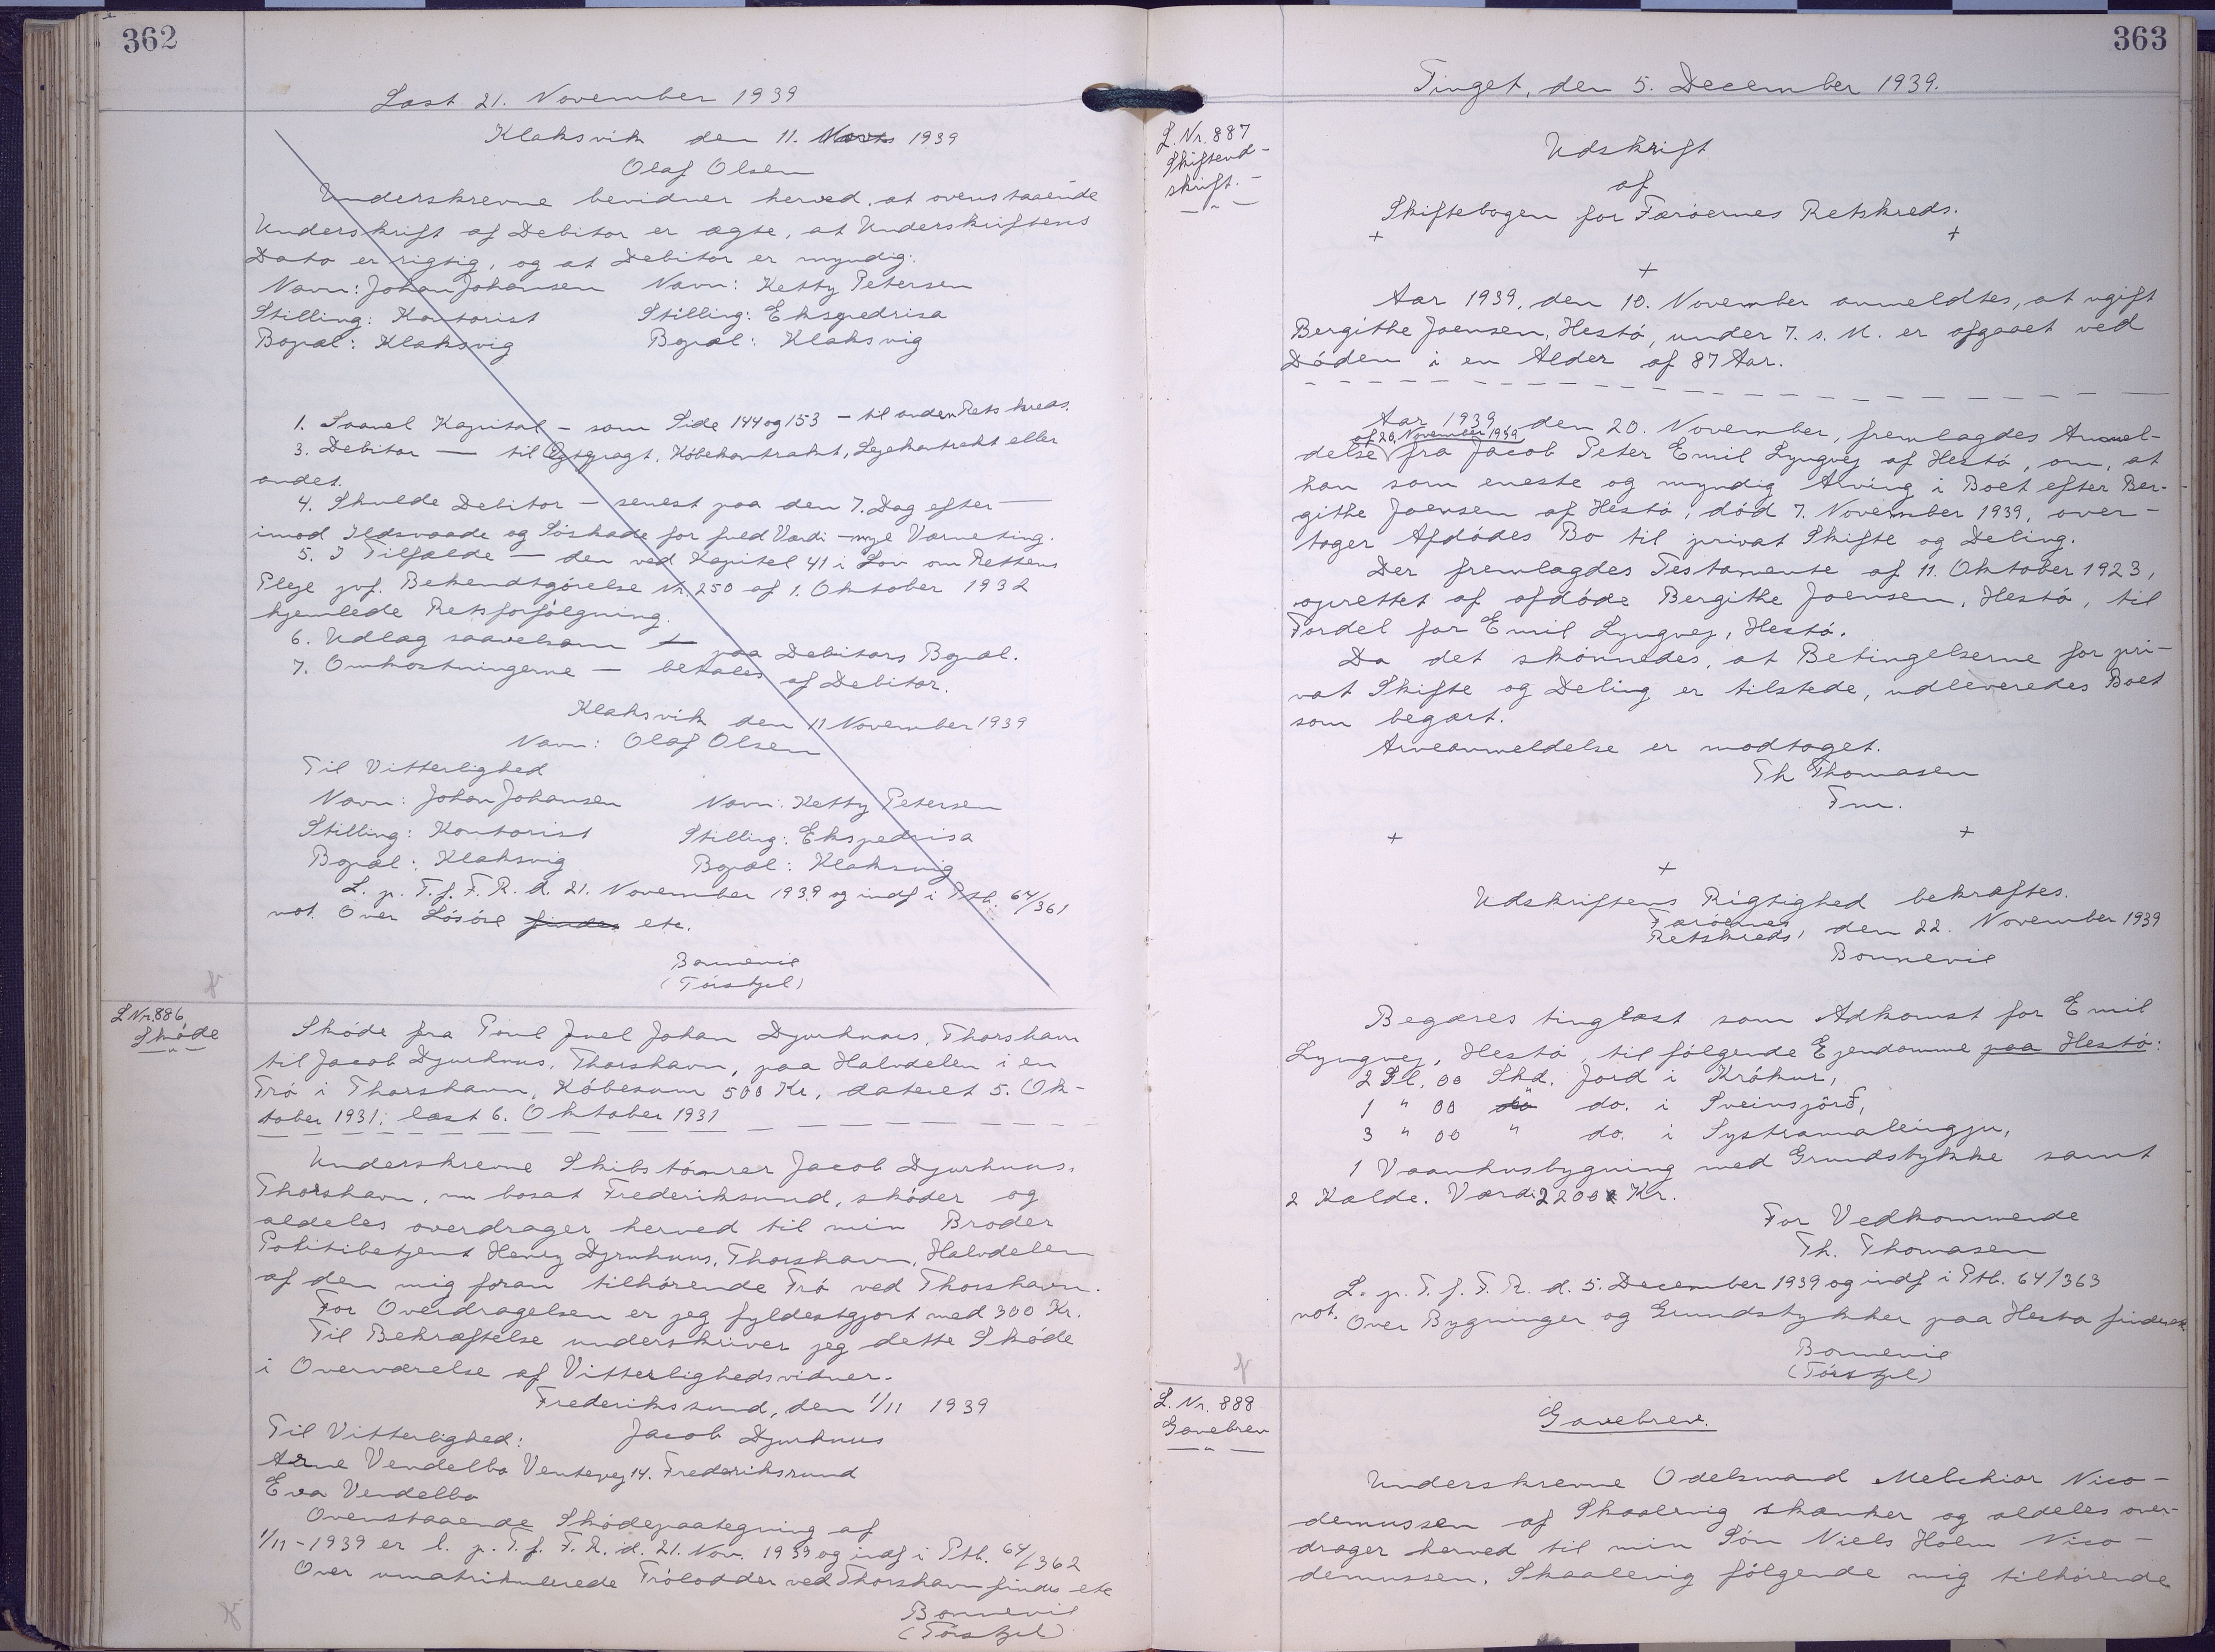 362
Læst 21. November 1939
Klaksvik den 11. Marts 1939
Olaf Olsen
Underskrevne bevidner herved, at ovenstaaende
Underskrift af Debitor er ægte, at Underskriftens
Dato er rigtig, og at Debitor er myndig:
Navn: Johan Johansen Navn: Ketty Petersen
Stilling: Kontorist Stilling: Ekspedrisa
Bopæl: Klaksvig Bopæl: Klaksvig
1. Saavel Kapital – som Side 144 og 153 – til anden Retskreds.
3. Debitor — til Ægtpagt, Købekontrakt, Lejekontrakt eller
andet.
4. Skulde Debitor – senest paa den 7. Dag efter —
imod Ildsvaade og Söskade for fuld Værdi – nye Værneting.
5. I Tilfælde — den ved Kapitel 41 i Lov om Rettens
Pleje jvf. Bekendtgörelse Nr. 250 af 1. Oktober 1932
hjemlede Retsforfölgning.
6. Udlæg saavelsom — paa Debitors Bopæl.
7. Omkostningerne — betales af Debitor.
Klaksvik den 11 November 1939
Navn: Olaf Olsen
Til Vitterlighed
Navn: Johan Johansen Navn: Ketty Petersen
Stilling: Kontorist Stilling: Ekspedrisa
Bopæl: Klaksvig Bopæl: Klaksvig
L. p. T. f. F. R. d. 21. November 1939 og indf i Ptb. 64/361
not. Over Lösöre findes etc.
Bonnevie
(Törstzel)
L Nr. 886
Sköde
Sköde fra Poul Juel Johan Djurhuus, Thorshavn
til Jacob Djurhuus, Thorshavn, paa Halvdelen i en
Trö i Thorshavn, Köbesum 500 Kr., dateret 5. Ok-
tober 1931, læst 6. Oktober 1931
Underskrevne Skibstömrer Jacob Djurhuus,
Thorshavn, nu bosat Frederikssund, sköder og
aldeles overdrager herved til min Broder
Politibetjent Henry Djurhuus, Thorshavn, Halvdelen
af den mig foran tilhörende Trö ved Thorshavn.
For Overdragelsen er jeg fyldestgjort med 300 Kr.
Til Bekræftelse underskriver jeg dette Sköde
i Overværelse af Vitterlighedsvidner.
Frederikssund, den 1/11 1939
Til Vitterlighed: Jacob Djurhuus
Arne Vendelbo 14. Frederikssund
Eva Vendelbo
Ovenstaaende Sködepaategning af
1/11-1939 er l. p. T. f. F. R. d. 21. Nov. 1939 og indf i Ptb. 64/362
Over umatrikulerede Trölodder ved Thorshavn findes etc
Bonnevie
(Törstzel)
363
Tinget, den 5. December 1939.
L. Nr. 887
Skifteud-
skrift.-
Udskrift
af
Skiftebogen for Færöernes Retskreds.
+ +
+
Aar 1939, den 10. November anmeldtes, at ugift
Bergithe Joensen, Hestö, under 7. s. M. er afgaaet ved
Döden i en Alder af 87 Aar.
Aar 1939 den 20. November, fremlagdes Anmel-
af 20. November 1939
delse fra Jacob Peter Emil Lyngvej af Hestö, om, at
han som eneste og myndig Arving i Boet efter Ber-
githe Joensen af Hestö, död 7. November 1939, over-
tager Afdödes Bo til privat Skifte og Deling.
Der fremlagdes Testamente af 11. Oktober 1923,
oprettet af afdöde Bergithe Joensen, Hestö, til
Fordel for Emil Lyngvej, Hestö.
Da det skönnedes, at Betingelserne for pri-
vat Skifte og Deling er tilstede, udleveredes Boet
som begært.
Arveanmeldelse er modtaget.
Th Thomasen
Fm.
+ +
+
Udskriftens Rigtighed bekræftes.
Færöernes
Retskreds, den 22. November 1939
Bonnevie
Begæres tinglæst som Adkomst for Emil
Lyngvej, Hestö, til fölgende Ejendomme paa Hestö:
2 Gl. 00 Skd. Jord i Krökur,
1 " 00 do " do. i Sveinsjörð,
3 " 00 " do. i Systramaleingju,
1 Vaanhusbygning med Grundstykke samt
2 Kælde. Værdi 2200 Kr.
For Vedkommende
Th. Thomasen
L. p. T. f. F. R. d. 5. December 1939 og indf i Ptb. 64/363
not. Over Bygninger og Grundstykker paa Hestö findes etc
Bonnevie
(Törstzel)
L. Nr. 888
Gavebrev
Gavebrev.
Underskrevne Odelsmand Melchior Nico-
demussen af Skaalevig skænker og aldeles over-
drager herved til min Sön Niels Holm Nico-
demussen, Skaalevig fölgende mig tilhörende